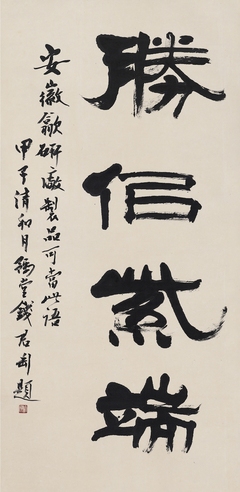 勝侣紫端
安徽歙研廠製品可當此語
甲子清和月豫堂錢君匋題